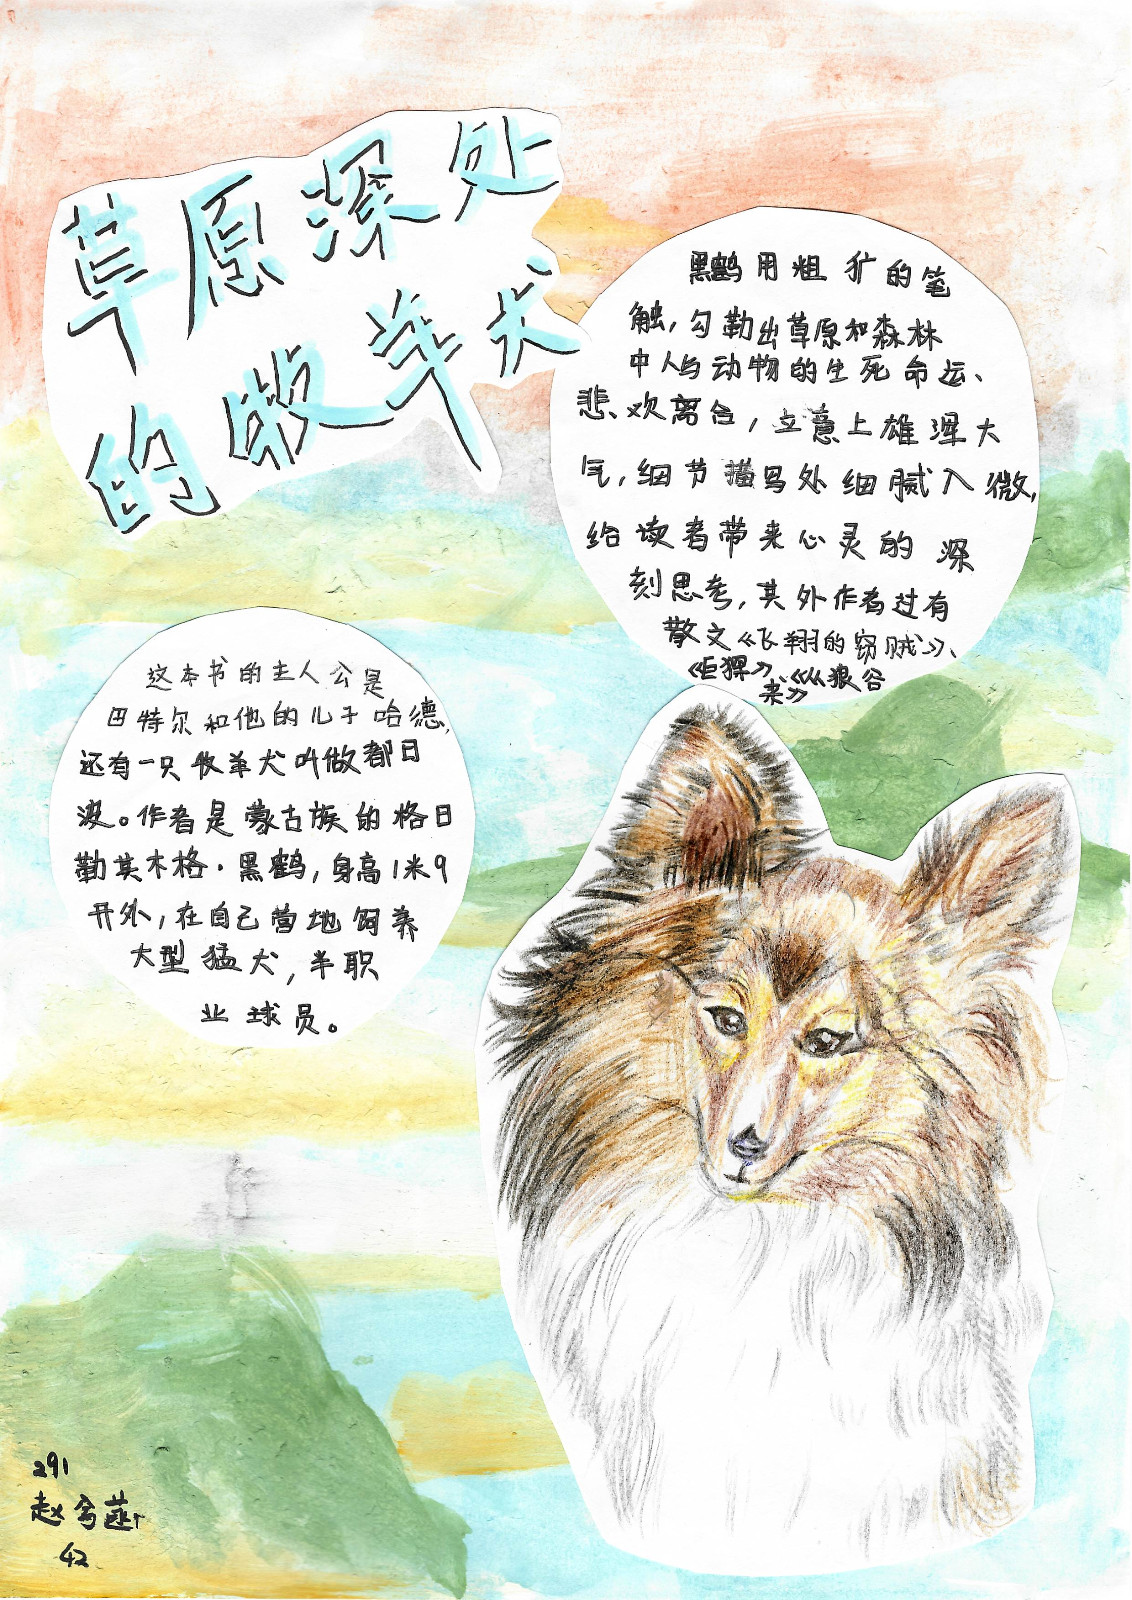 草原深处
的牧羊犬
黑鹤用粗犷的笔
触，勾勒出草原和森林
中人与动物的生死命运、
悲、欢离合，立意上雄浑大
气，细节描写处细腻入微，
给读者带来心灵的深
刻思考，其外作者过有
散文《飞翔的窃贼》、
《巨獒》、《从狼谷
来》
这本书的主人公是
巴特尔和他的儿子哈德，
还有一只牧羊犬叫做都日
波。作者是蒙古族的格日
勒其木格·黑鹤，身高1米9
开外，在自己营地饲养
大型猛犬，半职
业球员。
291
赵
42